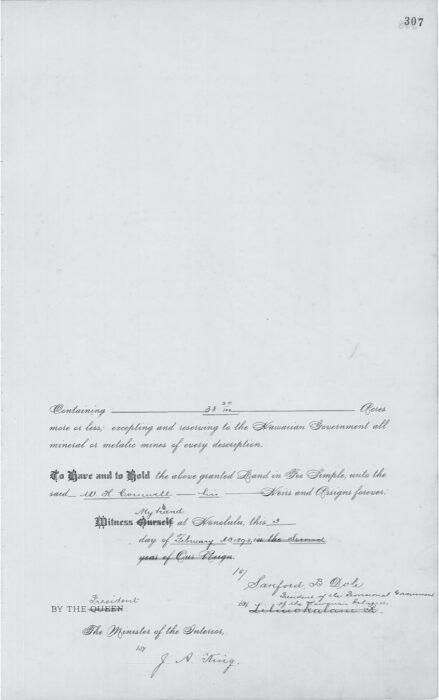 307
Containing 38 20/100 Acres
more or less; excepting and reserving to the Hawaiian Government all
mineral or metalic mines of every description.
To Have and to Hold the above granted Land in Fee Simple, unto the
said W H Cornwell his Heirs and Assigns forever.
My hand
Witness Ourself at Honolulu, this 3
day of February in the Second
year of Our Reign.
Sanford B Dole
President of the Provisional Government
of the Hawaiian Islands
President
BY THE QUEEN Liliuokalani R
The Minister of the Interior,
J. A. King.